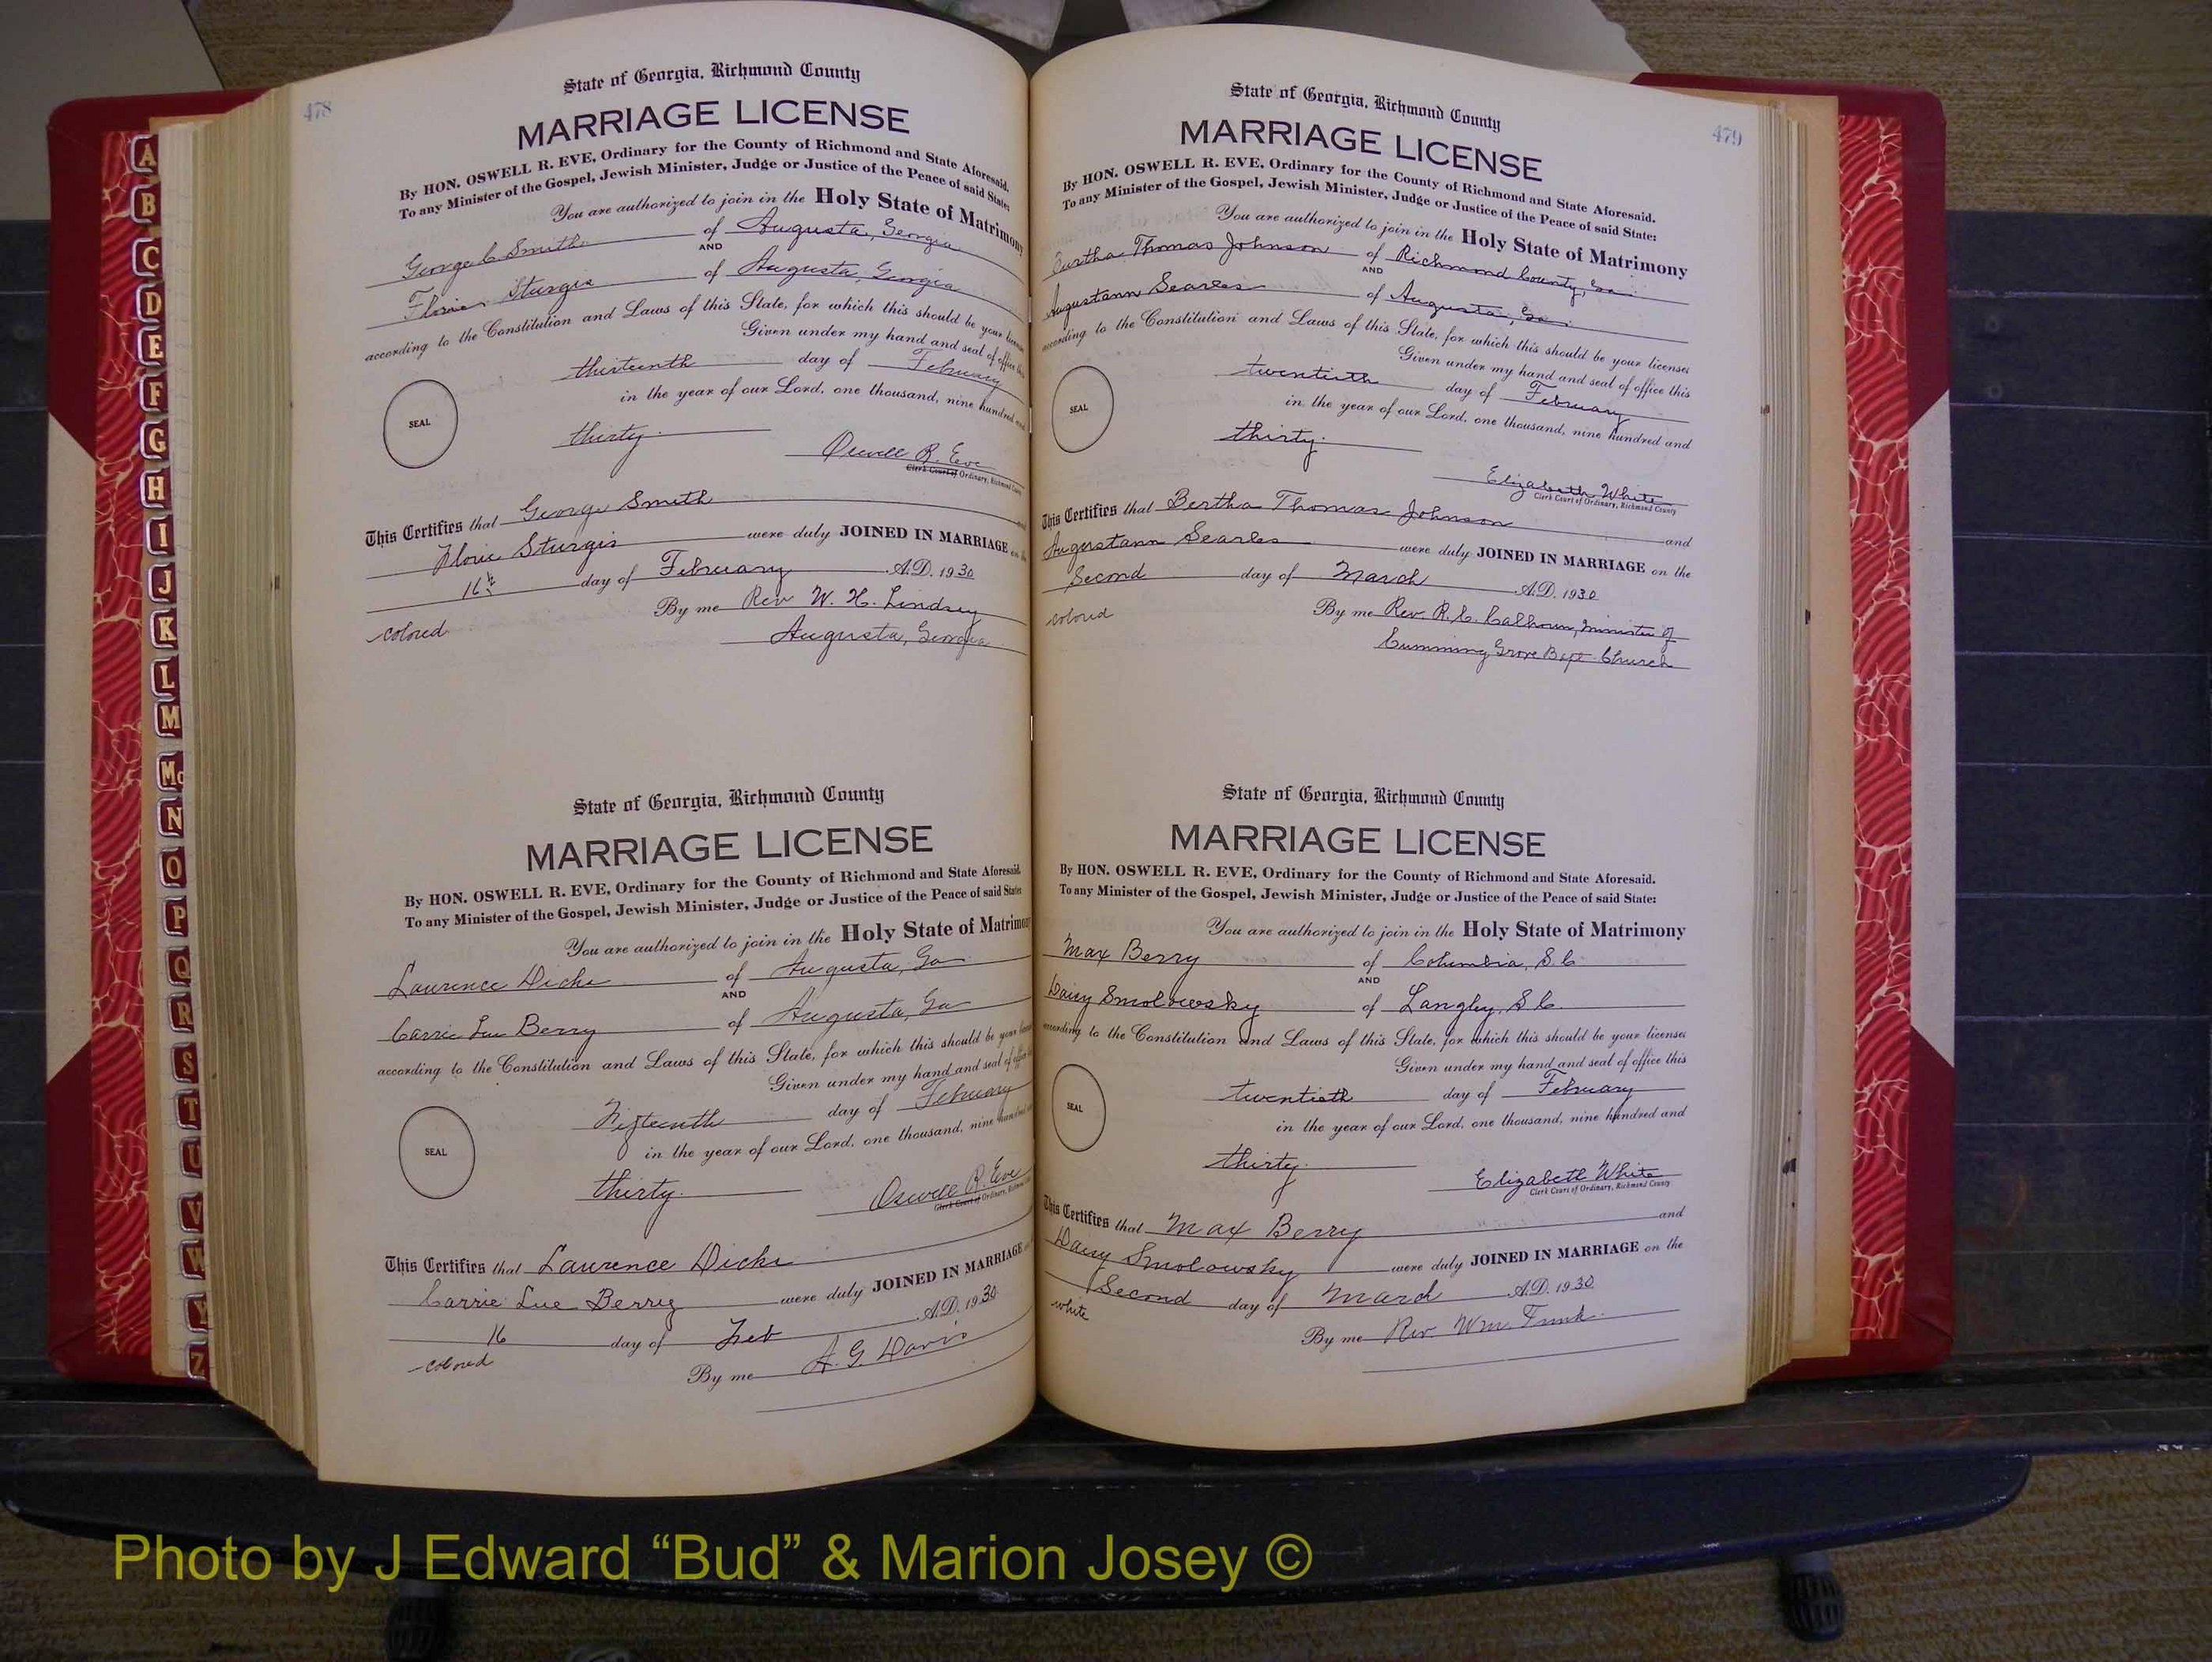 478
State of Georgia, Richmond County
MARRIAGE LICENSE
By HON. OSWELL R. EVE, Ordinary for the County of Richmond and State Aforesaid.
To any Minister of the Gospel, Jewish Minister, Judge or Justice of the Peace of said State:
You are authorized to join in the Holy State of Matrimony
George C Smith of Augusta, Georgia
AND
Florie Sturgis of Augusta, Georgia
according to the Constitution and Laws of this State, for which this should be your license
Given under my hand and seal of office this
thirteenth day of February
in the year of our Lord, one thousand, nine hundred and
SEAL
thirty.
Oswell R. Eve
Clerk Court of Ordinary, Richmond County
This Certifies that George Smith
Florie Sturgis were duly JOINED IN MARRIAGE on the
16th day of February A.D. 1930
By me Rev W. H. Lindsey
colored. Augusta, Georgia
State of Georgia, Richmond County
MARRIAGE LICENSE
By HON. OSWELL R. EVE, Ordinary for the County of Richmond and State Aforesaid.
To any Minister of the Gospel, Jewish Minister, Judge or Justice of the Peace of said State:
You are authorized to join in the Holy State of Matrimony
Laurence Dicks of Augusta, Ga
AND
Carrie Lue Berry of Augusta, Ga
according to the Constitution and Laws of this State, for which this should be your license
Given under my hand and seal of office
Fifteenth day of February
in the year of our Lord, one thousand, nine hundred
SEAL
thirty.
Oswell R. Eve
Clerk Court of Ordinary, Richmond
This Certifies that Laurence Dicks
Carrie Lue Berry were duly JOINED IN MARRIAGE
16 day of Feb A.D. 1930
colored By me A. G. Davis
479
State of Georgia, Richmond County
MARRIAGE LICENSE
By HON. OSWELL R. EVE, Ordinary for the County of Richmond and State Aforesaid.
To any Minister of the Gospel, Jewish Minister, Judge or Justice of the Peace of said State:
You are authorized to join in the Holy State of Matrimony
Thomas Johnson of Richmond County, Ga.
AND
Augustann Searles of Augusta, Ga.
according to the Constitution and Laws of this State, for which this should be your license
Given under my hand and seal of office this
twentieth day of February
in the year of our Lord, one thousand, nine hundred and
SEAL
thirty.
Elizabeth White
Clerk Court of Ordinary, Richmond County
This Certifies that Bertha Thomas Johnson and
Augustann Searles were duly JOINED IN MARRIAGE on the
Second day of March A.D. 1930
colored By me Rev. R. C. Calhoun, Minister of
Cumming Grove Bapt Church
State of Georgia, Richmond County
MARRIAGE LICENSE
By HON. OSWELL R. EVE, Ordinary for the County of Richmond and State Aforesaid.
To any Minister of the Gospel, Jewish Minister, Judge or Justice of the Peace of said State:
You are authorized to join in the Holy State of Matrimony
Max Berry of Columbia, S.C.
AND
Daisy Smolowsky of Langley, S.C.
according to the Constitution and Laws of this State, for which this should be your license
Given under my hand and seal of office this
twentieth day of February
in the year of our Lord, one thousand, nine hundred and
SEAL
thirty.
Elizabeth White
Clerk Court of Ordinary, Richmond County
This Certifies that Max Berry and
Daisy Smolowsky were duly JOINED IN MARRIAGE on the
Second day of March A.D. 1930
white By me Rev. Wm. Funk.
A
B
C
D
E
F
G
H
I
J
K
L
M
Mc
N
O
P
Q
R
S
T
U
V
W
Y
Z
Photo by J Edward “Bud” & Marion Josey ©